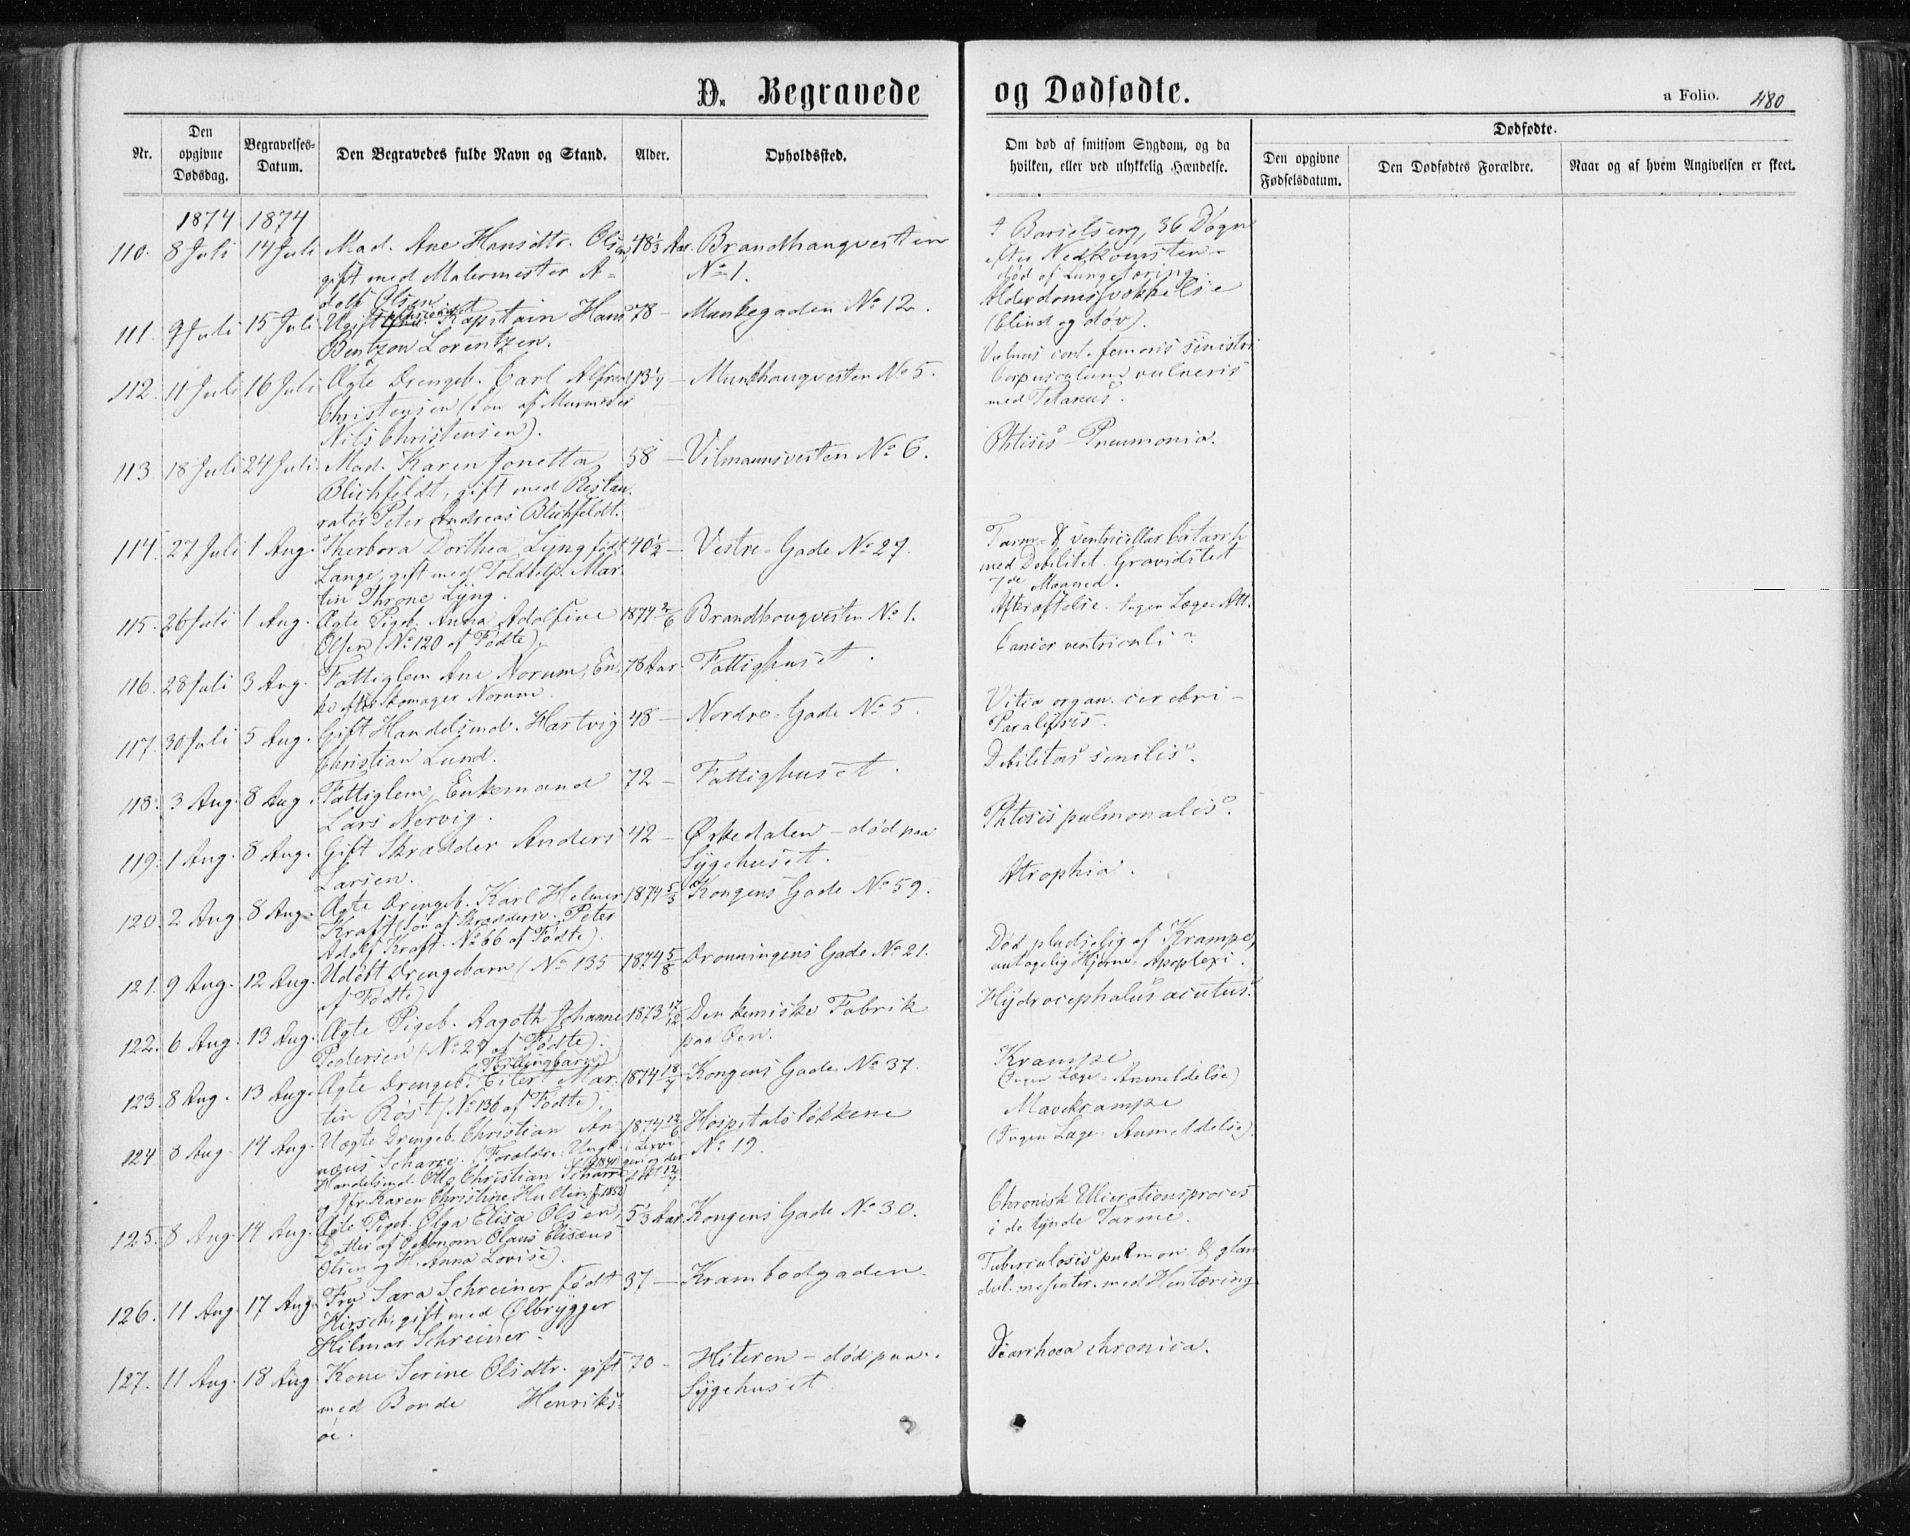 D. Begravede og Dødfødte.
a Folio. 480
Nr.
Den opgivne Dødsdag.
Begravelses-Datum.
Den Begravedes fulde Navn og Stand.
Alder.
Opholdssted.
Om død af smitsom Sygdom, og da hvilken, eller ved ulykkelig Hændelse.
Dødfødte.
Den opgivne Fødselsdatum.
Den Dødfødtes Forældre.
Naar og af hvem Angivelsen er skeet.
1874 1874
110. 8 Juli 14 Juli Mad. Ane Hansdtr. Olsen, 48 1/3 Aar. Brandhaugvesten
gift med Malermester A- No 1.
dolf Olsen
Barselseng, 36 Døgn
efter Nedkomsten -
død af Lungetæring.
111. 9 Juli 15 Juli Ugift Kaptain Hans 78 - Munkegaden No 12.
Bentzon Lorentzen.
Alderdomssvækkelse
(blind og døv).
112. 11 Juli 16 Juli Ægte Drengeb. Carl Alfred 13 1/7 - Munkhaugvesten No 5.
Christensen (Søn af Murmester
Nils Christensen).
Vulnus cont. femoris sinistri
Corpusculum vulneris
med Tetanus.
113. 18 Juli 24 Juli Mad. Karen Jonetta 58 - Vilmannsvesten No 6.
Blichfeldt, gift med Restau-
ratør Peter Andreas Blichfeldt.
Phtisis - Pneumonia.
114. 27 Juli 1 Aug. Therbora Dorthea Lyng født 40 1/2 - Vestre-Gade No 27.
Lange, gift med Toldbetj. Mar-
tin Throne Lyng.
Tarm- & ventricellar Catarrh
med Debilitet. Graviditet
7de Maaned.
115. 26 Juli 1 Aug. Ægte Pigeb. Anna Adolfine 1874 2/6 Brandhougvesten No 1.
Olsen (No 120 af Fødte)
Afkræftelse. Ingen Læge-Att.
116. 28 Juli 3 Aug. Fattiglem Ane Norum, En- 78 Aar. Fattighuset.
ke efter Skomager Norum.
Cancer ventriculi?
117. 30 Juli 5 Aug. Gift Handelsmd. Hartvig 48 - Nordre-Gade No 5.
Christian Lund.
Vitia organ. cerebri -
Paralysis.
118. 3 Aug. 8 Aug. Fattiglem, Enkemand 72 - Fattighuset.
Lars Nervig.
Debilitas senilis.
119. 1 Aug. 8 Aug. Gift Skrædder Anders 42 - Ørkedalen - død paa
Larsen. Sygehuset.
Phtisis pulmonalis.
120. 2 Aug. 8 Aug. Ægte Drengeb. Karl Helmer 1874 5/3 Kongens Gade No 59.
Kraft (Søn af Skræddersv. Peter
Adolf Kraft. No 66 af Fødte).
Atrophia.
121. 9 Aug. 12 Aug. Udøbt Drengebarn (No 135 1874 5/8 Dronningens Gade No 21.
af Fødte)
Død pludselig af Krampe,
antagelig Hjerne-Apoplexi.
122. 6 Aug. 13 Aug. Ægte Pigeb. Aagoth Johanne 1873 17/12 Den kemiske Fabrik
Pedersen (No 27 af Fødte). paa Øen.
Hydrocephalus acutus.
123. 8 Aug. 13 Aug. Ægte Drengeb. (Tvillingbarn) Eilert Mar- 1874 18/7 Kongens Gade No 37.
tin Røst (No 136 af Fødte).
Krampe
(Ingen Læge-Anmeldelse)
124 8 Aug. 14 Aug. Uægte Drengeb. Christian An- 1874 12/6 Hospitalsløkkene
næus Scharre. (Forældre: Ungk. No 19.
Handelsmd. Otto Christian Scharre
Karen Christine
Mavekrampe
(Ingen Læge-Anmeldelse).
125. 8 Aug. 14 Aug. Ægte Pigeb. Olga Elisa Olsen, 5 1/3 Aar. Kongens Gade No 30.
Datter af Oekonom Olaus Elisæus
Olsen og H. Anna Lovise).
Chronisk Ulcerationsproces
i de tynde Tarme.
126. 11 Aug. 17 Aug. Fru Sara Schreiner født 37 - Krambodgaden.
Hirsch, gift med Ølbrygger
Hilmar Schreiner.
Tuberculosis pulmon. & glan-
dul. mesenter. med Hentæring
127. 11 Aug. 18 Aug Kone Serine Olsdtr. gift 70 - Hiteren - død paa
med Bonde Henriks- Sygehuset
øe.
Diarrhoea chronica.